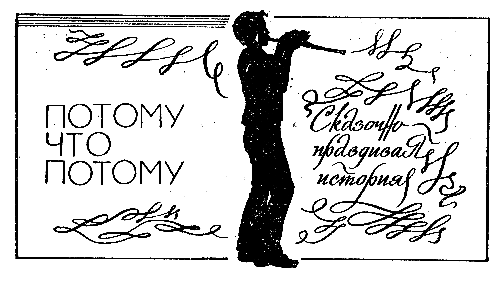 ПОТОМУ
ЧТО
ПОТОМУ
Сказочно
правдивая
история